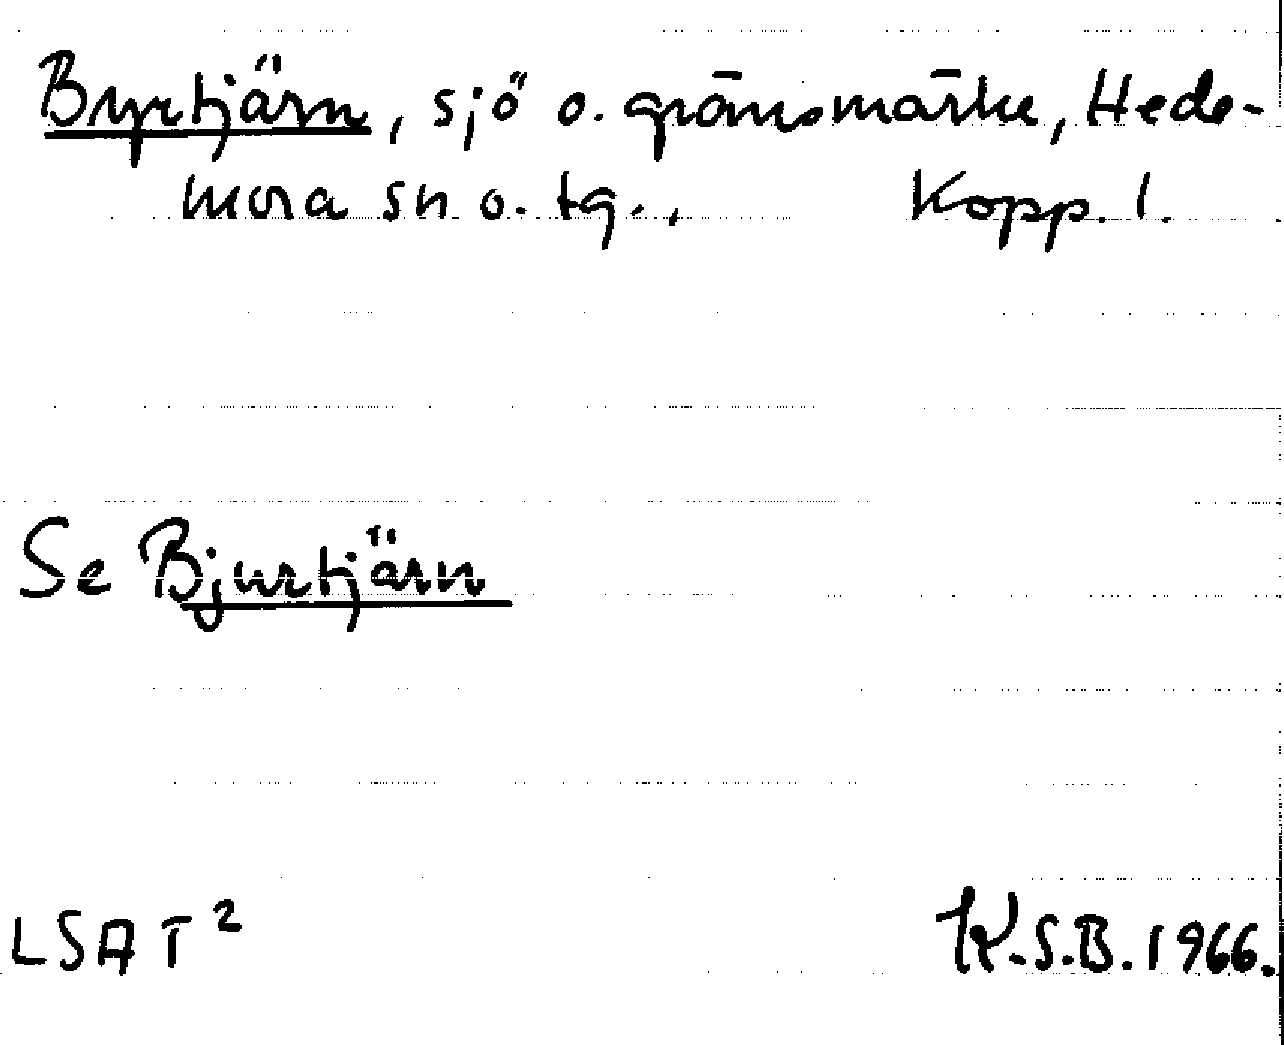 Byrtjärn, sjö o. gränsmärke, Hede-
mora sn o. tg., Kopp. l.
Se Bjurtjärn
LSA T²
K.S.B. 1966.